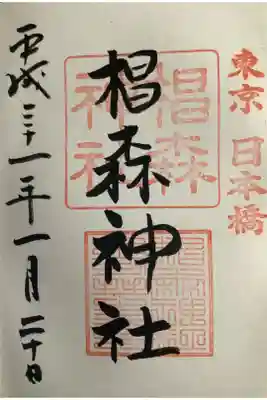 東京 日本橋
椙森神社
椙森神社
平成三十一年一月二十日